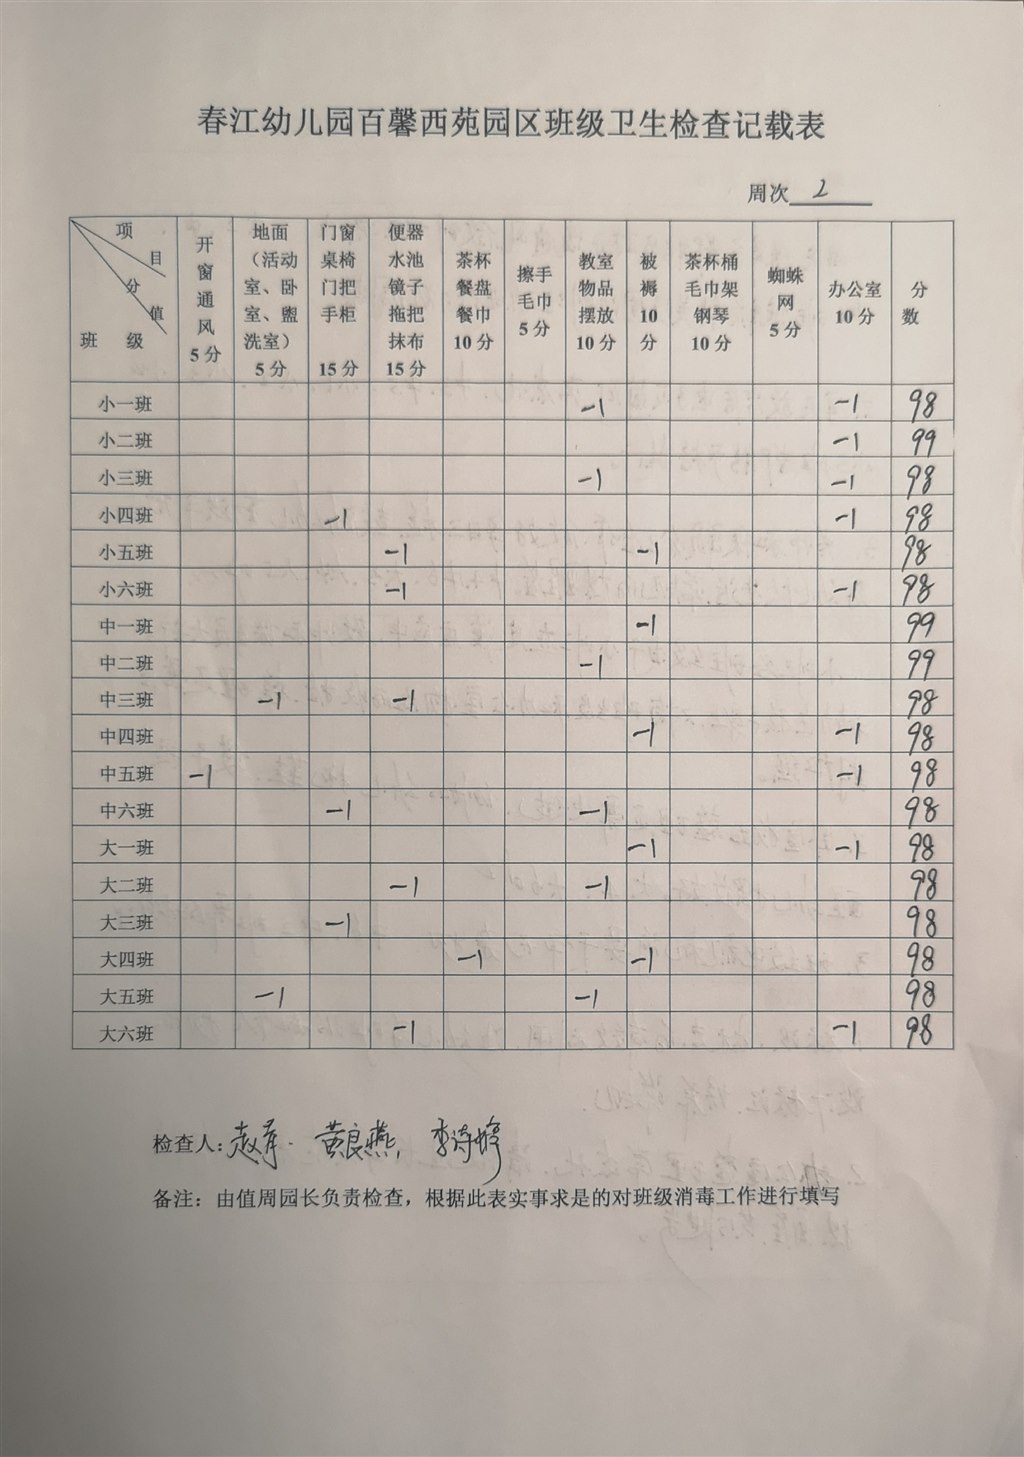 春江幼儿园百馨西苑园区班级卫生检查记载表
周次 2
项目 分值 班级 开窗通风5分 地面（活动室、卧室、盥洗室）5分 门窗桌椅门把手柜15分 便器水池镜子拖把抹布15分 茶杯餐盘餐巾10分 擦手毛巾5分 教室物品摆放10分 被褥10分 茶杯桶毛巾架钢琴10分 蜘蛛网5分 办公室10分 分数
小一班 -1 -1 98
小二班 -1 99
小三班 -1 -1 98
小四班 -1 -1 98
小五班 -1 -1 98
小六班 -1 -1 98
中一班 -1 99
中二班 -1 99
中三班 -1 -1 98
中四班 -1 -1 98
中五班 -1 -1 98
中六班 -1 -1 98
大一班 -1 -1 98
大二班 -1 -1 98
大三班 -1 98
大四班 -1 -1 98
大五班 -1 -1 98
大六班 -1 -1 98
检查人: 黄良燕, 李诗婷
备注：由值周园长负责检查，根据此表实事求是的对班级消毒工作进行填写